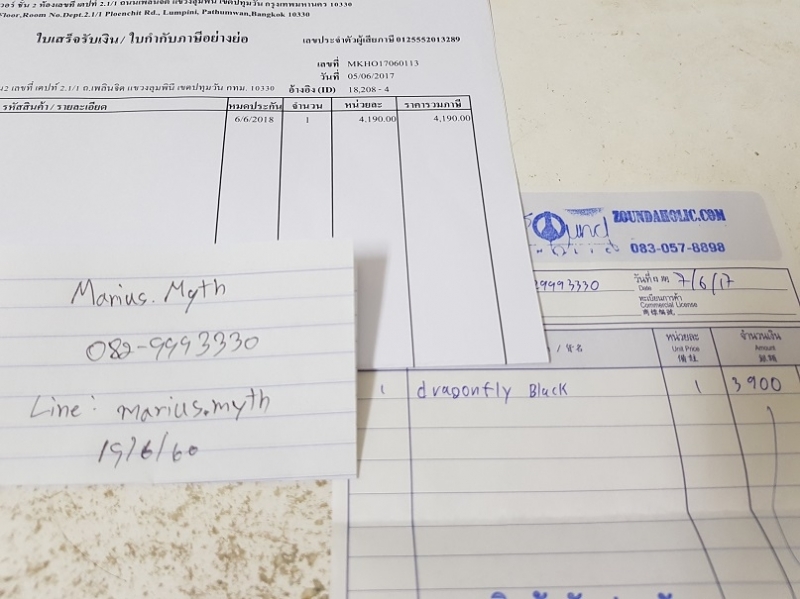 เวอร์ ชั้น 2 ห้องเลขที่ เดปท์ 2.1/1 ถนนเพลินจิต แขวงลุมพินี เขตปทุมวัน กรุงเทพมหานคร 10330
Floor,Room No.Dept.2.1/1 Ploenchit Rd., Lumpini, Pathumwan,Bangkok 10330
ใบเสร็จรับเงิน / ใบกำกับภาษีอย่างย่อ
เลขประจำตัวผู้เสียภาษี 0125552013289
เลขที่ MKHO17060113
วันที่ 05/06/2017
น2 เลขที่ เดปท์ 2.1/1 ถ.เพลินจิต แขวงลุมพินี เขตปทุมวัน กทม. 10330 อ้างอิง (ID) 18,208 - 4
รหัสสินค้า / รายละเอียด หมดประกัน จำนวน หน่วยละ ราคารวมภาษี
6/6/2018 1 4,190.00 4,190.00
Marius.Myth
082-9993330
Line: marius.myth
19/6/60
ZOUNDAHOLIC.COM
083-057-8898
29993330 วันที่ 7/6/17
Date
ทะเบียนการค้า
Commercial License
商標號號
หน่วยละ จำนวนเงิน
/ 貨名 Unit Price Amount
價柱
1 dragonfly Black 1 3900